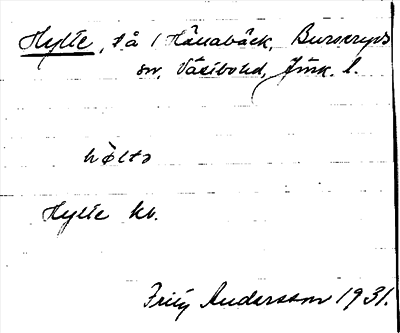 Hylte, t å / Hånabäck, Burseryds
sn, Västbo hd, Jönk. l.
hølta
Hylte kv.
Fritz Andersson 1931.